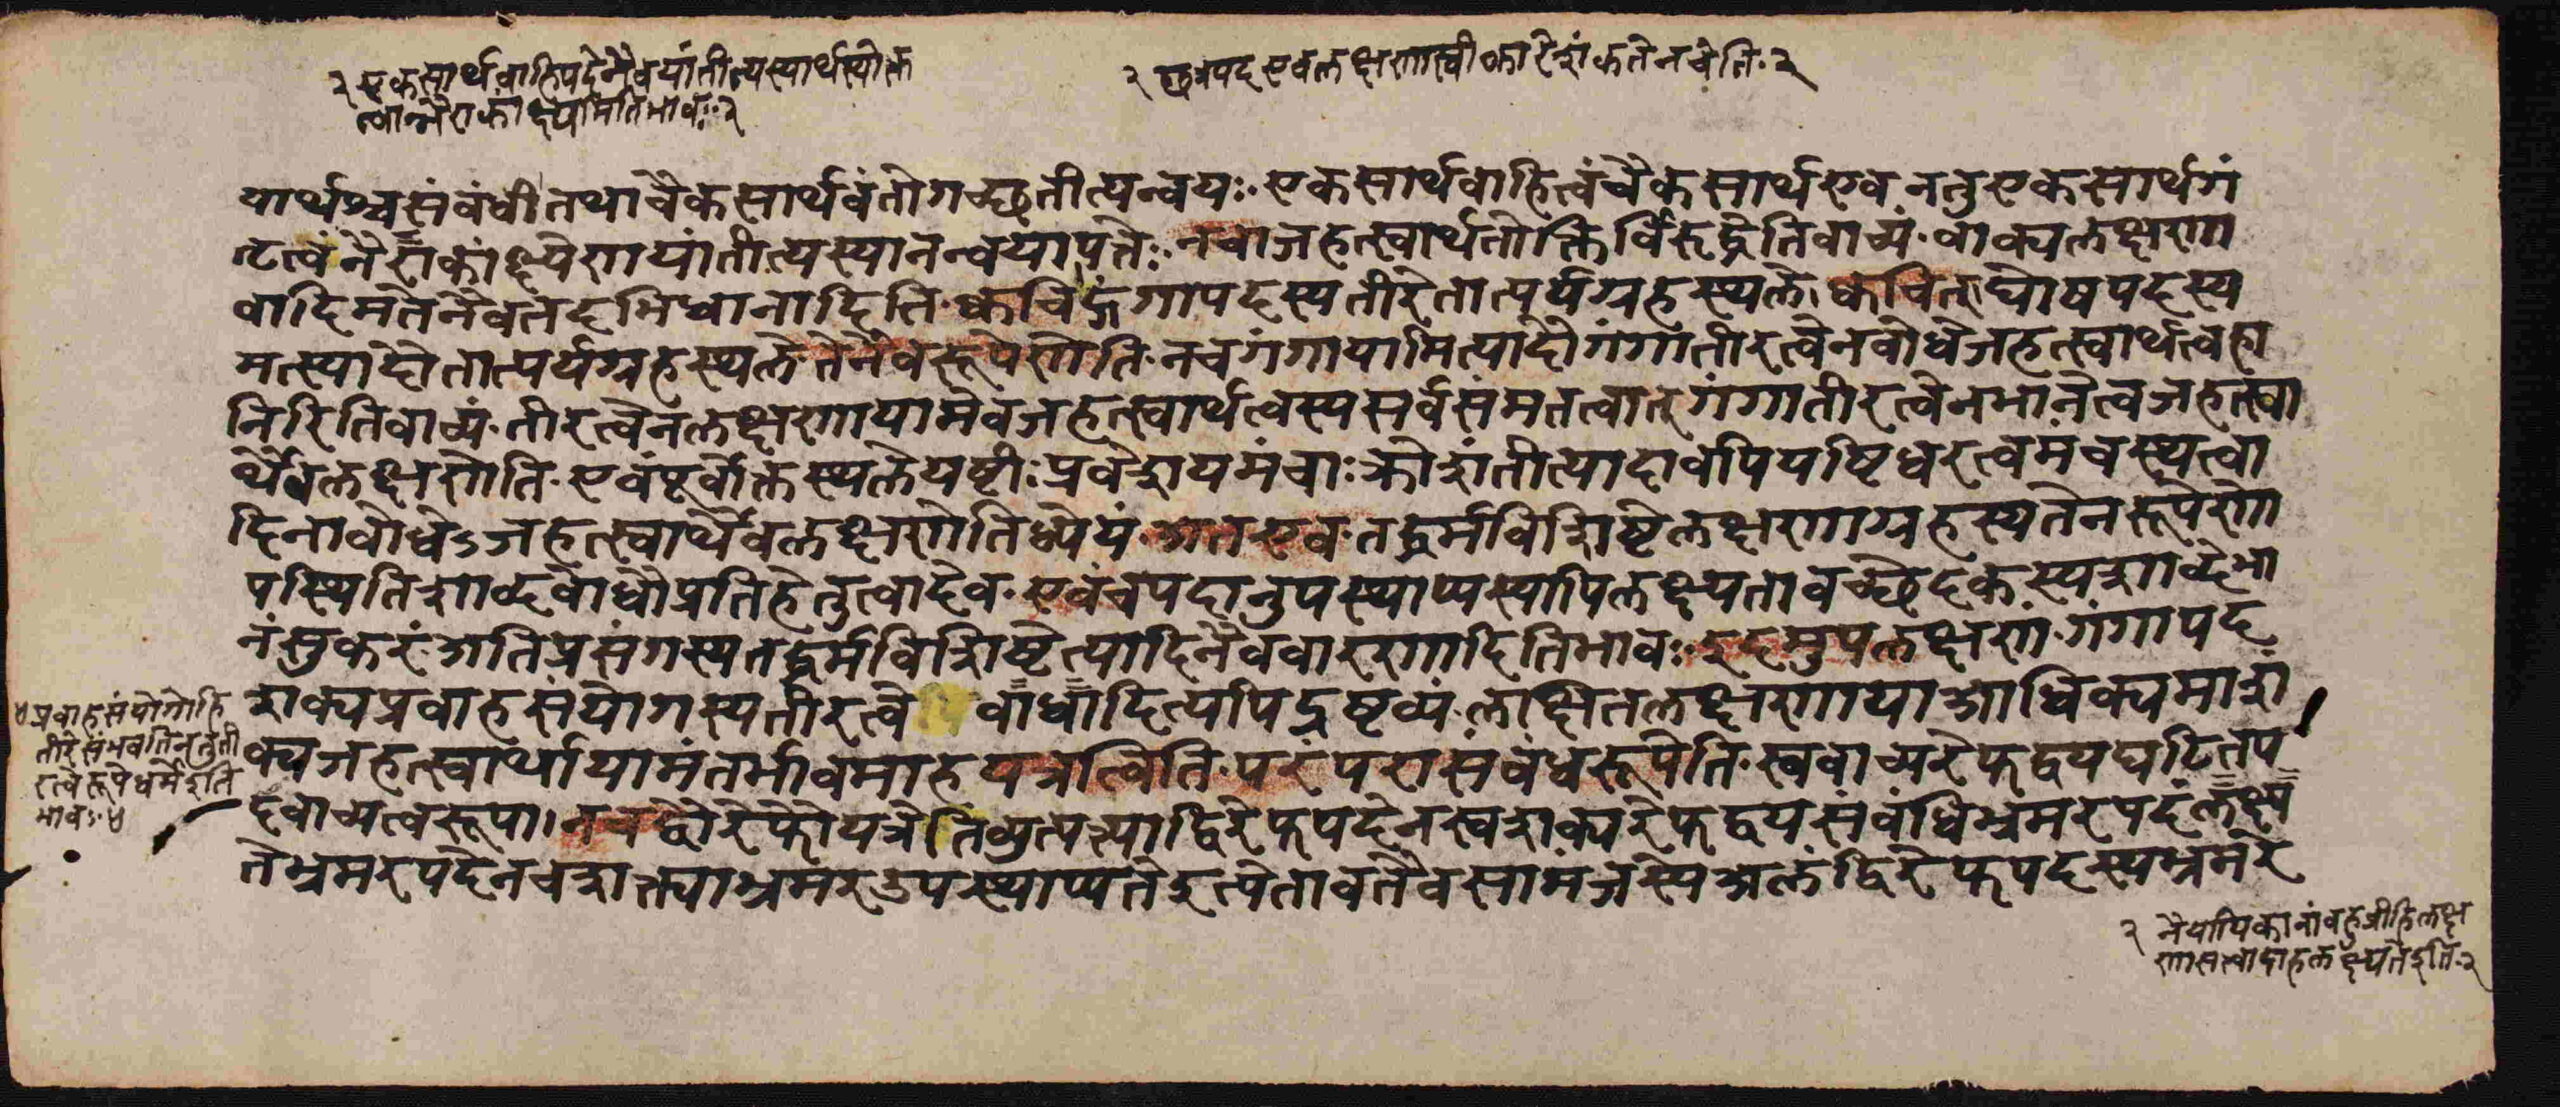 २ एकसार्थवाहिपदेनैव यांतीत्यस्यार्थस्योक्त
त्वान्नैराकांक्ष्यमितिभावः २
२ छत्रपद एवलक्षणास्वीकारे शंकते नचेति २
यार्थश्च संबंधी तथाचैकसार्थवंतो गच्छंतीत्यन्वयः एकसार्थवाहित्वं चैकसार्थ एव न तु एकसार्थगं
तृत्वं नैराकांक्ष्येण यांतीत्यस्यानन्वयापत्तेः नचाजहत्स्वार्थतोक्तिर्विरुद्धेतिवाच्यं वाक्यलक्षणा
वादिमतेनैवतदभिधानादिति क्वचिद्गंगापदस्य तीरेतात्पर्यग्रहस्थले क्वचित्तु घोषपदस्य
मत्स्यादौ तात्पर्यग्रहस्थले तेनैवरूपेणेति नच गंगायामित्यादौ गंगातीरत्वेनबोधे जहत्स्वार्थत्वहा
निरितिवाच्यं तीरत्वेनलक्षणायामेव जहत्स्वार्थत्वस्य सर्वसंमतत्वात् गंगातीरत्वेनभाने त्वजहत्स्वा
र्थैवलक्षणेति एवंपूर्वोक्तस्थले यष्टीः प्रवेशय मंचाः क्रोशंतीत्यादावपि यष्टिधरत्वमंचस्थत्वा
दिनाबोधेऽजहत्स्वार्थैवलक्षणेतिध्येयं अत एव तद्धर्मविशिष्टेलक्षणाग्रहस्य तेनरूपेणो
पस्थितिशाब्दबोधौप्रतिहेतुत्वादेव एवंच पदानुपस्थाप्यस्यापि लक्ष्यतावच्छेदकस्य शाब्देभा
नं सुकरं अतिप्रसंगस्य तद्धर्मविशिष्टेत्यादिनैववारणादितिभावः इदमुपलक्षणं गंगापद
शक्यप्रवाहसंयोगस्य तीरत्वे बाधादित्यपि द्रष्टव्यं लक्षितलक्षणाया आधिक्यमाशं
क्य जहत्स्वार्थायामंतर्भावमाह यत्रत्विति परंपरासंबंधरूपेति स्ववाच्यरेफद्वयघटितप
दवाच्यत्वरूपा। नच द्वौरेफौयत्रेतिव्युत्पत्त्या द्विरेफपदेन स्वशक्यरेफद्वयसंबंधिभ्रमरपदं लक्ष्य
ते भ्रमरपदेन च शक्त्या भ्रमर उपस्थाप्यते इत्येतावतैवसामंजस्ये अलं द्विरेफपदस्य भ्रमरे
४ प्रवाहसंयोगोहि
तीरे संभवति न तु ती
रत्वरूपेधर्मे इति
भावः ४
२ नैयायिकानां बहुव्रीहिलक्ष
णासत्वादाह लक्ष्यते इति २